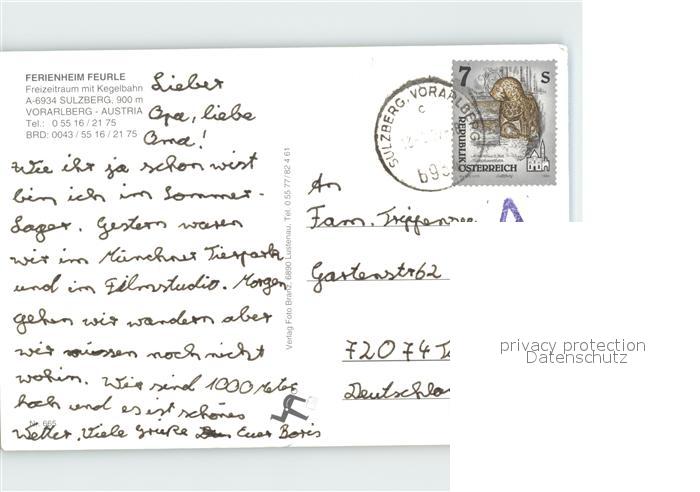 FERIENHEIM FEURLE
Freizeitraum mit Kegelbahn
A-6934 SULZBERG, 900 m
VORARLBERG - AUSTRIA
Tel.: 0 55 16 / 21 75
BRD: 0043 / 55 16 / 21 75
Lieber
Opa, liebe
Oma!
Wie ihr ja schon wist
bin ich im Sommer-
Lager. Gestern waren
wir im Münchner Tierpark
und im Filmstudio. Morgen
gehen wir wandern aber
wir müssen noch nicht
wohin. Wir sind 1000 Meter
hoch und es ist schönes
Wetter. Viele Grüße Euer Boris
Nr. 665
Verlag Foto Branz, 6890 Lustenau, Tel. 0 55 77 / 82 4 61
SULZBERG, VORARLBERG
c
7 S
REPUBLIK
ÖSTERREICH
An
Fam. Trippensee
Gartenstr 62
72074 T
Deutschla
privacy protection
Datenschutz